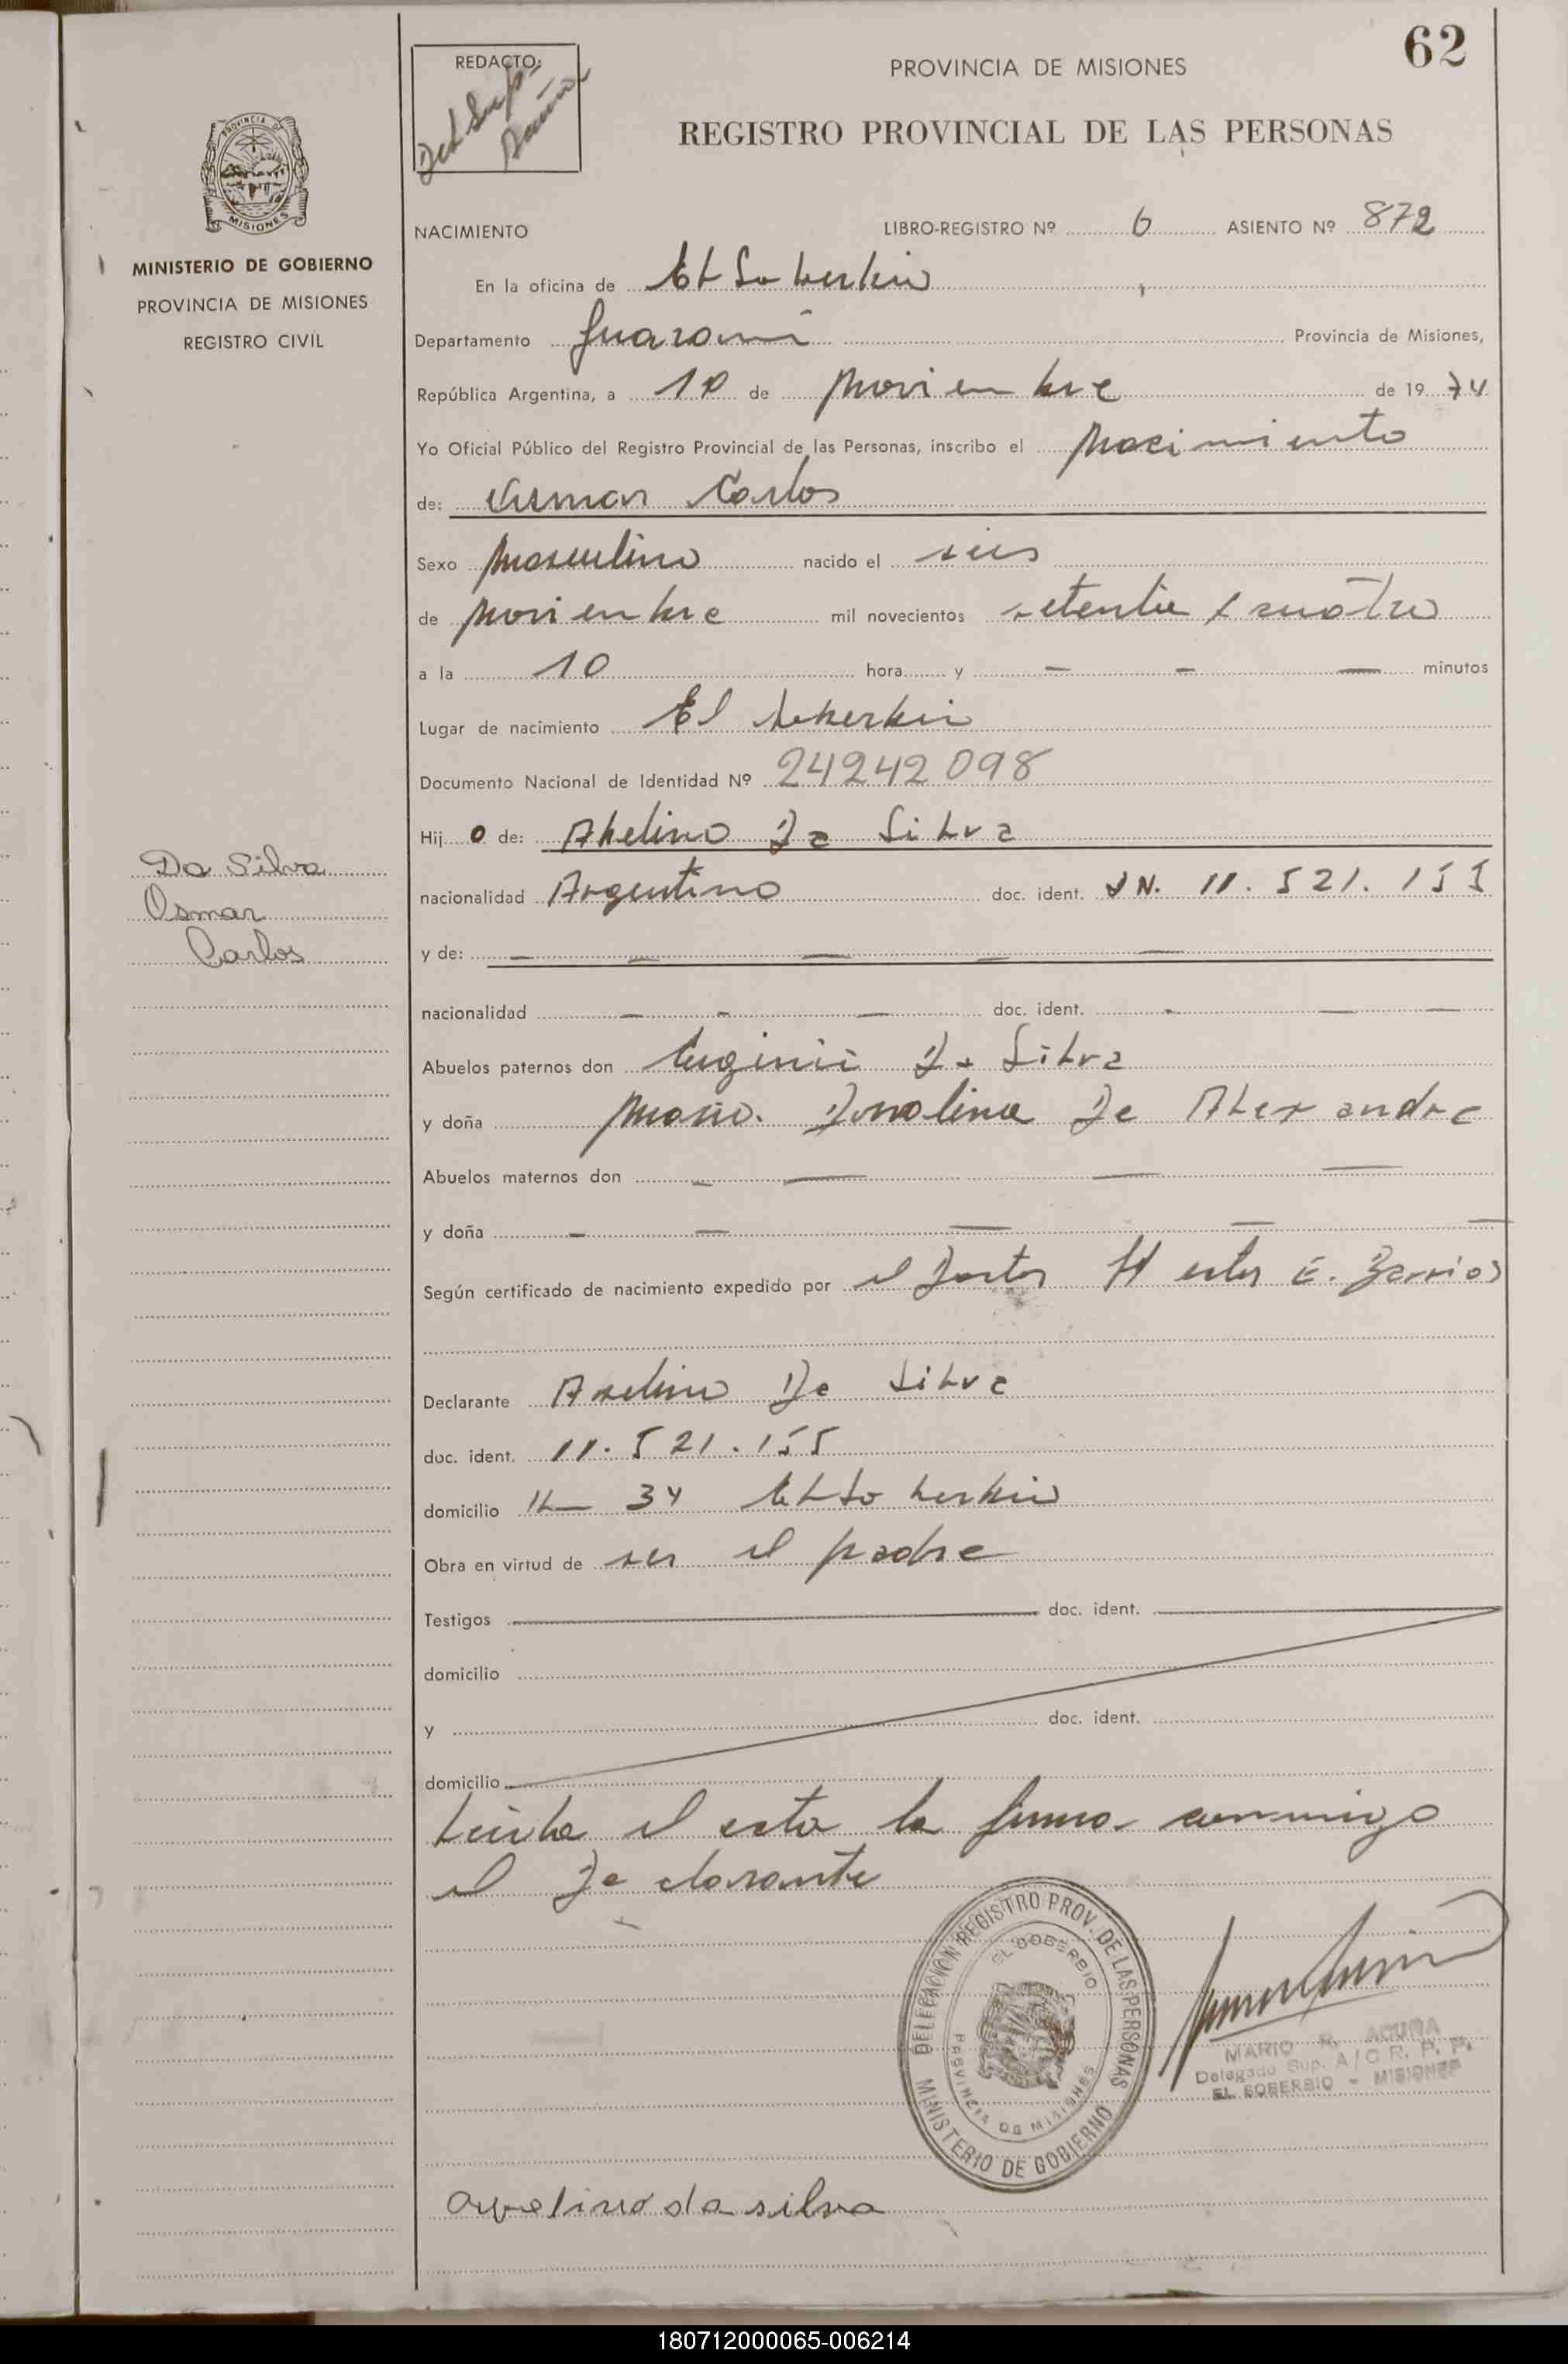 62
REDACTO:
Del Sup.
Acuña
PROVINCIA DE MISIONES
REGISTRO PROVINCIAL DE LAS PERSONAS
PROVINCIA DE
MISIONES
MINISTERIO DE GOBIERNO
PROVINCIA DE MISIONES
REGISTRO CIVIL
NACIMIENTO LIBRO-REGISTRO Nº 6 ASIENTO Nº 872
En la oficina de El Soberbio
Departamento Guaraní Provincia de Misiones,
República Argentina, a 10 de Noviembre de 19 74
Yo Oficial Público del Registro Provincial de las Personas, inscribo el Nacimiento
de: Osmar Carlos
Sexo Masculino nacido el seis
de Noviembre mil novecientos setenta y cuatro
a la 10 hora y — — — minutos
Lugar de nacimiento El Soberbio
Documento Nacional de Identidad Nº 24242098
Hij o de: Abelino Da Silva
Da Silva
Osmar
Carlos
nacionalidad Argentino doc. ident. DN. 11.521.155
y de: — — — — —
nacionalidad — — — doc. ident. — — —
Abuelos paternos don Da Silva
y doña De Alexandre
Abuelos maternos don — — — —
y doña — — — — —
Según certificado de nacimiento expedido por el Doctor Hector E. Barrios
Declarante Avelino Da Silva
doc. ident. 11.521.155
domicilio 34 El Soberbio
Obra en virtud de ser el padre
Testigos doc. ident.
domicilio
y doc. ident.
domicilio
Leída el acta la firma conmigo
el Declarante
DELEGACION REGISTRO PROV. DE LAS PERSONAS
EL SOBERBIO
PROVINCIA DE MISIONES
MINISTERIO DE GOBIERNO
MARIO R. ACUÑA
Delegado Sup. A/C R. P. P.
EL SOBERBIO - MISIONES
avelino da silva
180712000065-006214